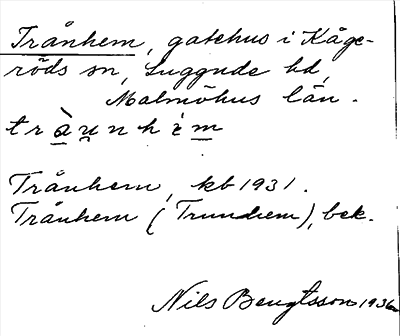 Trånhem, gatehus i Kåge-
röds sn, Luggude hd,
Malmöhus län.
tràu̯nhèm
Trånhem, kb 1931.
Trånhem (Trundhem), bek.
Nils Bengtsson 1936